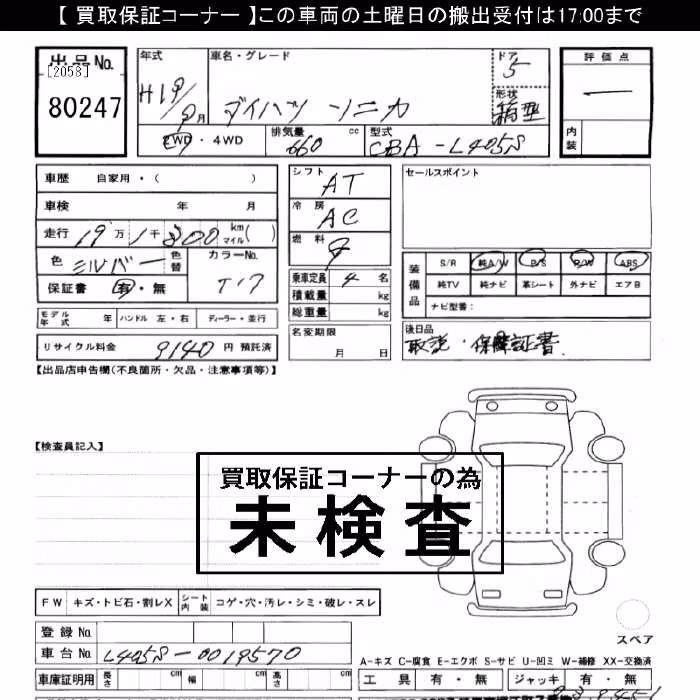 【 買取保証コーナー 】この車両の土曜日の搬出受付は17:00まで
出品No.
[2058]
80247
年式
H19/9月
車名・グレード
ダイハツ ソニカ
ドア
5
形状
箱型
評価点
内装
2WD・4WD
排気量
660 cc
型式
CBA-L405S
車歴 自家用・( )
車検 年 月
走行 19万1千800 km マイル( )
色 シルバー 色替
カラーNo.
T17
保証書 有・無
シフト
AT
冷房
AC
燃料
乗車定員 4名
積載量 kg
総重量 kg
名変期限
月 日
セールスポイント
装備品
S/R 純A/W P/S P/W ABS
純TV 純ナビ 革シート 外ナビ エアB
ナビ型番:
モデル年式 年 ハンドル 左・右 ディーラー・並行
リサイクル料金 9140 円 預託済
後日品
取説・保障証書
【出品店申告欄(不良箇所・欠品・注意事項等)】
【検査員記入】
買取保証コーナーの為
未検査
FW キズ・トビ石・割レX シート内装 コゲ・穴・汚レ・シミ・破レ・スレ
スペア
登録No.
車台No. L405S-0019570
A-キズ C-腐食 E-エクボ S-サビ U-凹ミ W-補修 XX-交換済
車庫証明用 長さ cm 幅 cm 高さ cm
工具 有・無 ジャッキ 有・無